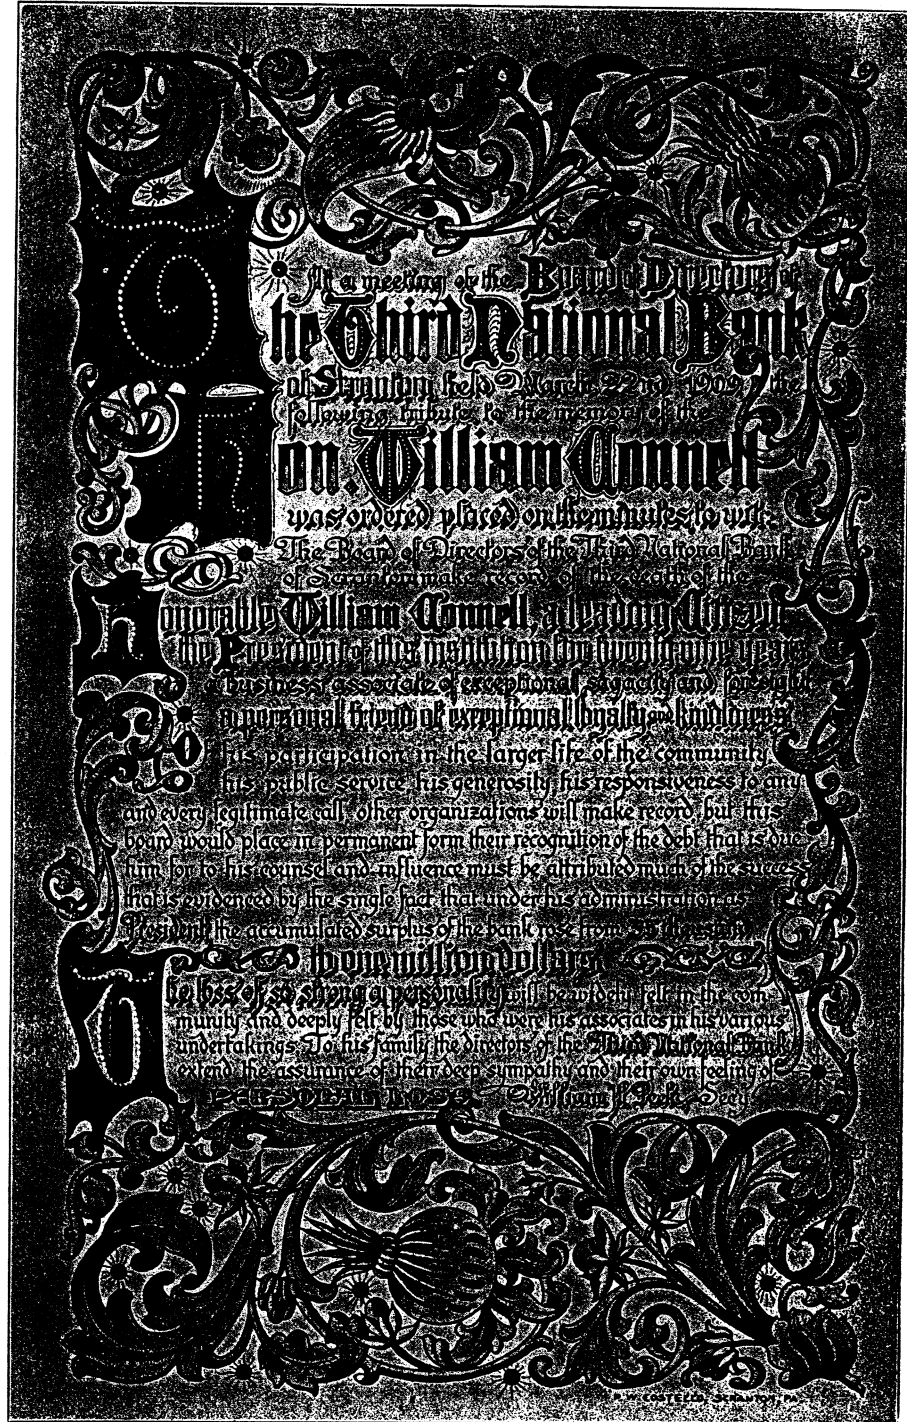 At a meeting of the Board of Directors of
The Third National Bank
of Scranton held March 22nd 1909 the
following tribute to the memory of the
Hon. William Connell
was ordered placed on the minutes to wit:
The Board of Directors of the Third National Bank
of Scranton make record of the death of the
Honorable William Connell, a leading Citizen
the President of this institution for twenty-one years
a business associate of exceptional sagacity and foresight
a personal friend of exceptional loyalty and kindness
To his participation in the larger life of the community
his public service, his generosity his responsiveness to any
and every legitimate call, other organizations will make record, but this
board would place in permanent form their recognition of the debt that is due
him for to his counsel and influence must be attributed much of the success
that is evidenced by the single fact that under his administration as
President the accumulated surplus of the bank rose from thousand
to one million dollars.
The loss of so strong a personality will be widely felt in the com-
munity and deeply felt by those who were his associates in his various
undertakings. To his family the directors of the Third National Bank
extend the assurance of their deep sympathy and their own feeling of
PERSONAL LOSS. William H. Peck Secy
P. COSTELLO, SCRANTON, PA.